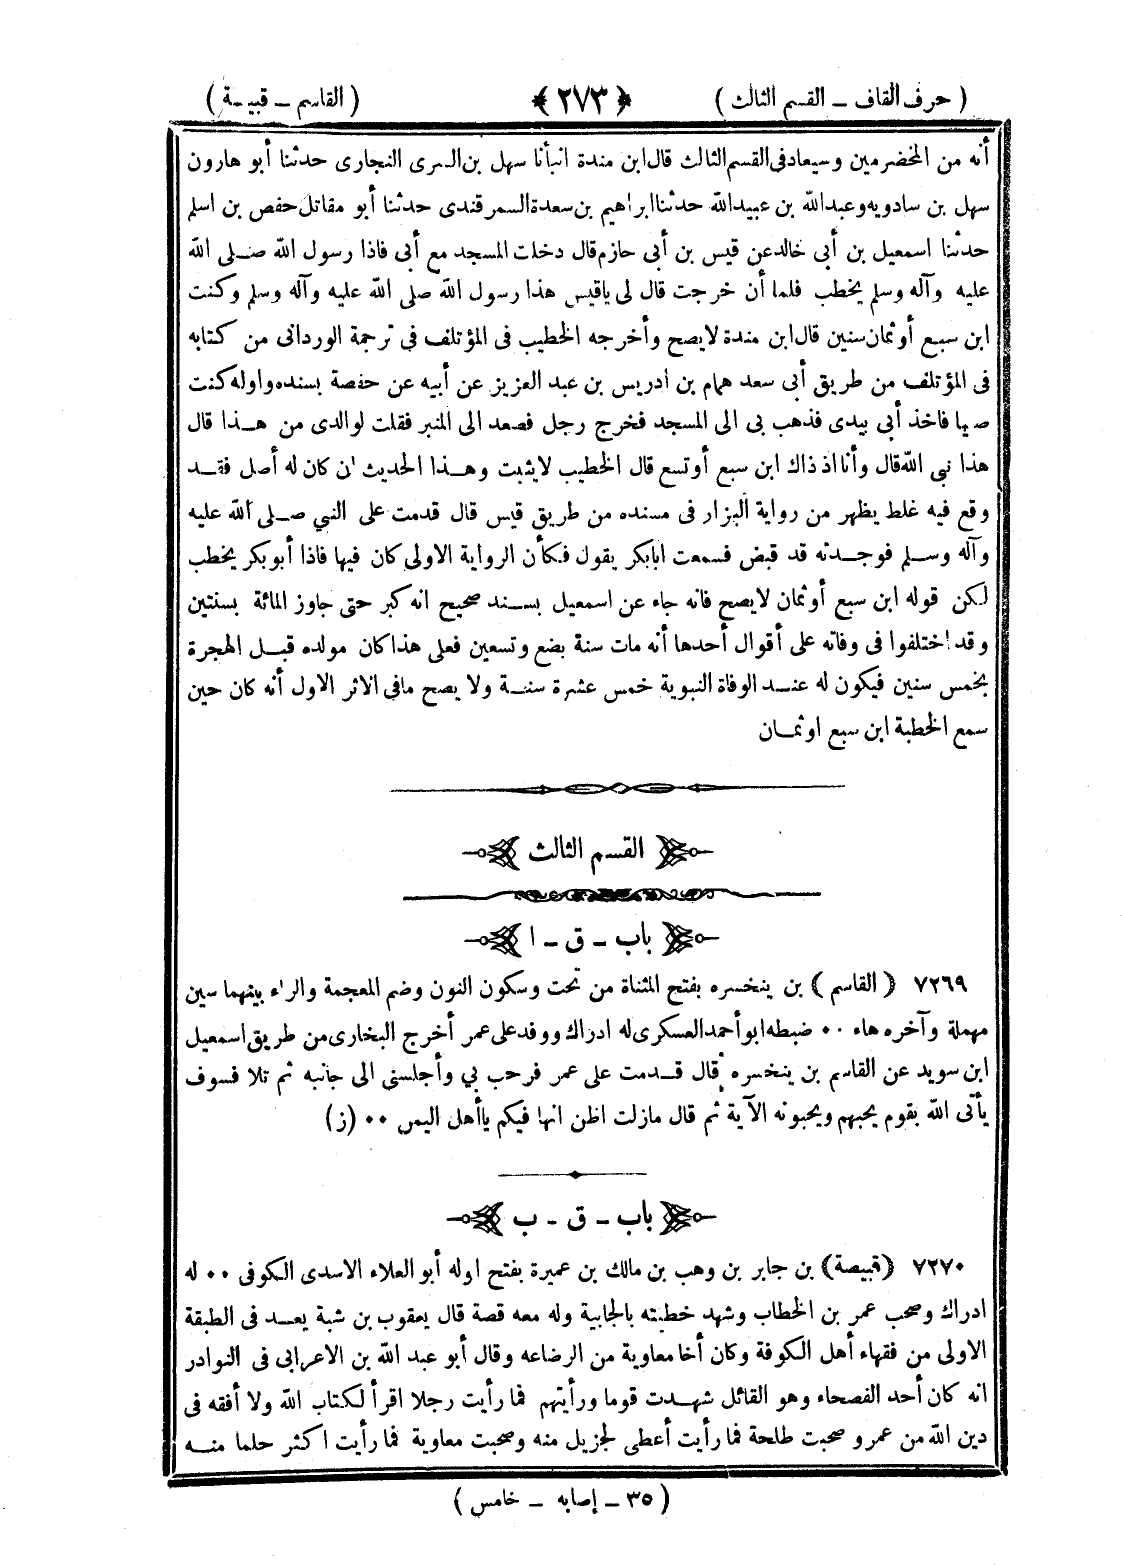 ( حرف القاف – القسم الثالث ) ﴿ ٢٧٣ ﴾ ( القاسم – قبيصة )
أنه من المخضرمين وسيعاد فى القسم الثالث قال ابن مندة انبأنا سهل بن السرى النجارى حدثنا أبو هارون
سهل بن سادويه وعبد الله بن عبيد الله حدثنا ابراهيم بن سعدة السمرقندى حدثنا أبو مقاتل حفص بن اسلم
حدثنا اسمعيل بن أبى خالد عن قيس بن أبى حازم قال دخلت المسجد مع أبى فاذا رسول الله صلى الله
عليه وآله وسلم يخطب فلما أن خرجت قال لى ياقيس هذا رسول الله صلى الله عليه وآله وسلم وكنت
ابن سبع أو ثمان سنين قال ابن مندة لا يصح وأخرجه الخطيب فى المؤتلف فى ترجمة الوردانى من كتابه
فى المؤتلف من طريق أبى سعد همام بن ادريس بن عبد العزيز عن أبيه عن حفصة بسنده واوله كنت
صبيا فاخذ أبى بيدى فذهب بى الى المسجد فخرج رجل فصعد الى المنبر فقلت لوالدى من هذا قال
هذا نبى الله قال وأنا اذ ذاك ابن سبع أو تسع قال الخطيب لا يثبت وهذا الحديث ان كان له أصل فقد
وقع فيه غلط يظهر من رواية البزار فى مسنده من طريق قيس قال قدمت على النبي صلى الله عليه
وآله وسلم فوجدته قد قبض فسمعت ابابكر يقول فكأن الرواية الاولى كان فيها فاذا أبو بكر يخطب
لكن قوله ابن سبع أو ثمان لا يصح فانه جاء عن اسمعيل بسند صحيح انه كبر حتى جاوز المائة بسنتين
وقد اختلفوا فى وفاته على أقوال أحدها أنه مات سنة بضع وتسعين فعلى هذا كان مولده قبل الهجرة
بخمس سنين فيكون له عند الوفاة النبوية خمس عشرة سنة ولا يصح مافى الاثر الاول أنه كان حين
سمع الخطبة ابن سبع او ثمان
القسم الثالث
باب – ق – ا
٧٢٦٩ ﴿ القاسم ﴾ بن ينخسره بفتح المثناة من تحت وسكون النون وضم المعجمة والراء بينهما سين
مهملة وآخره هاء ٠٠ ضبطه ابو أحمد العسكرى له ادراك ووفد على عمر أخرج البخارى من طريق اسمعيل
ابن سويد عن القاسم بن ينخسره قال قدمت على عمر فرحب بي وأجلسنى الى جانبه ثم تلا فسوف
يأتى الله بقوم يحبهم ويحبونه الآية ثم قال مازلت اظن انها فيكم ياأهل اليمن ٠٠ (ز)
باب – ق – ب
٧٢٧٠ ﴿قبيصة﴾ بن جابر بن وهب بن مالك بن عميرة بفتح اوله أبو العلاء الاسدى الكوفى ٠٠ له
ادراك وصحب عمر بن الخطاب وشهد خطبته بالجابية وله معه قصة قال يعقوب بن شبة يعد فى الطبقة
الاولى من فقهاء أهل الكوفة وكان أخا معاوية من الرضاعه وقال أبو عبد الله بن الاعرابى فى النوادر
انه كان أحد الفصحاء وهو القائل شهدت قوما ورأيتهم فما رأيت رجلا اقرأ لكتاب الله ولا أفقه فى
دين الله من عمر و صحبت طلحة فما رأيت أعطى لجزيل منه وصحبت معاوية فما رأيت اكثر حلما منه
( ٣٥ – إصابه – خامس )